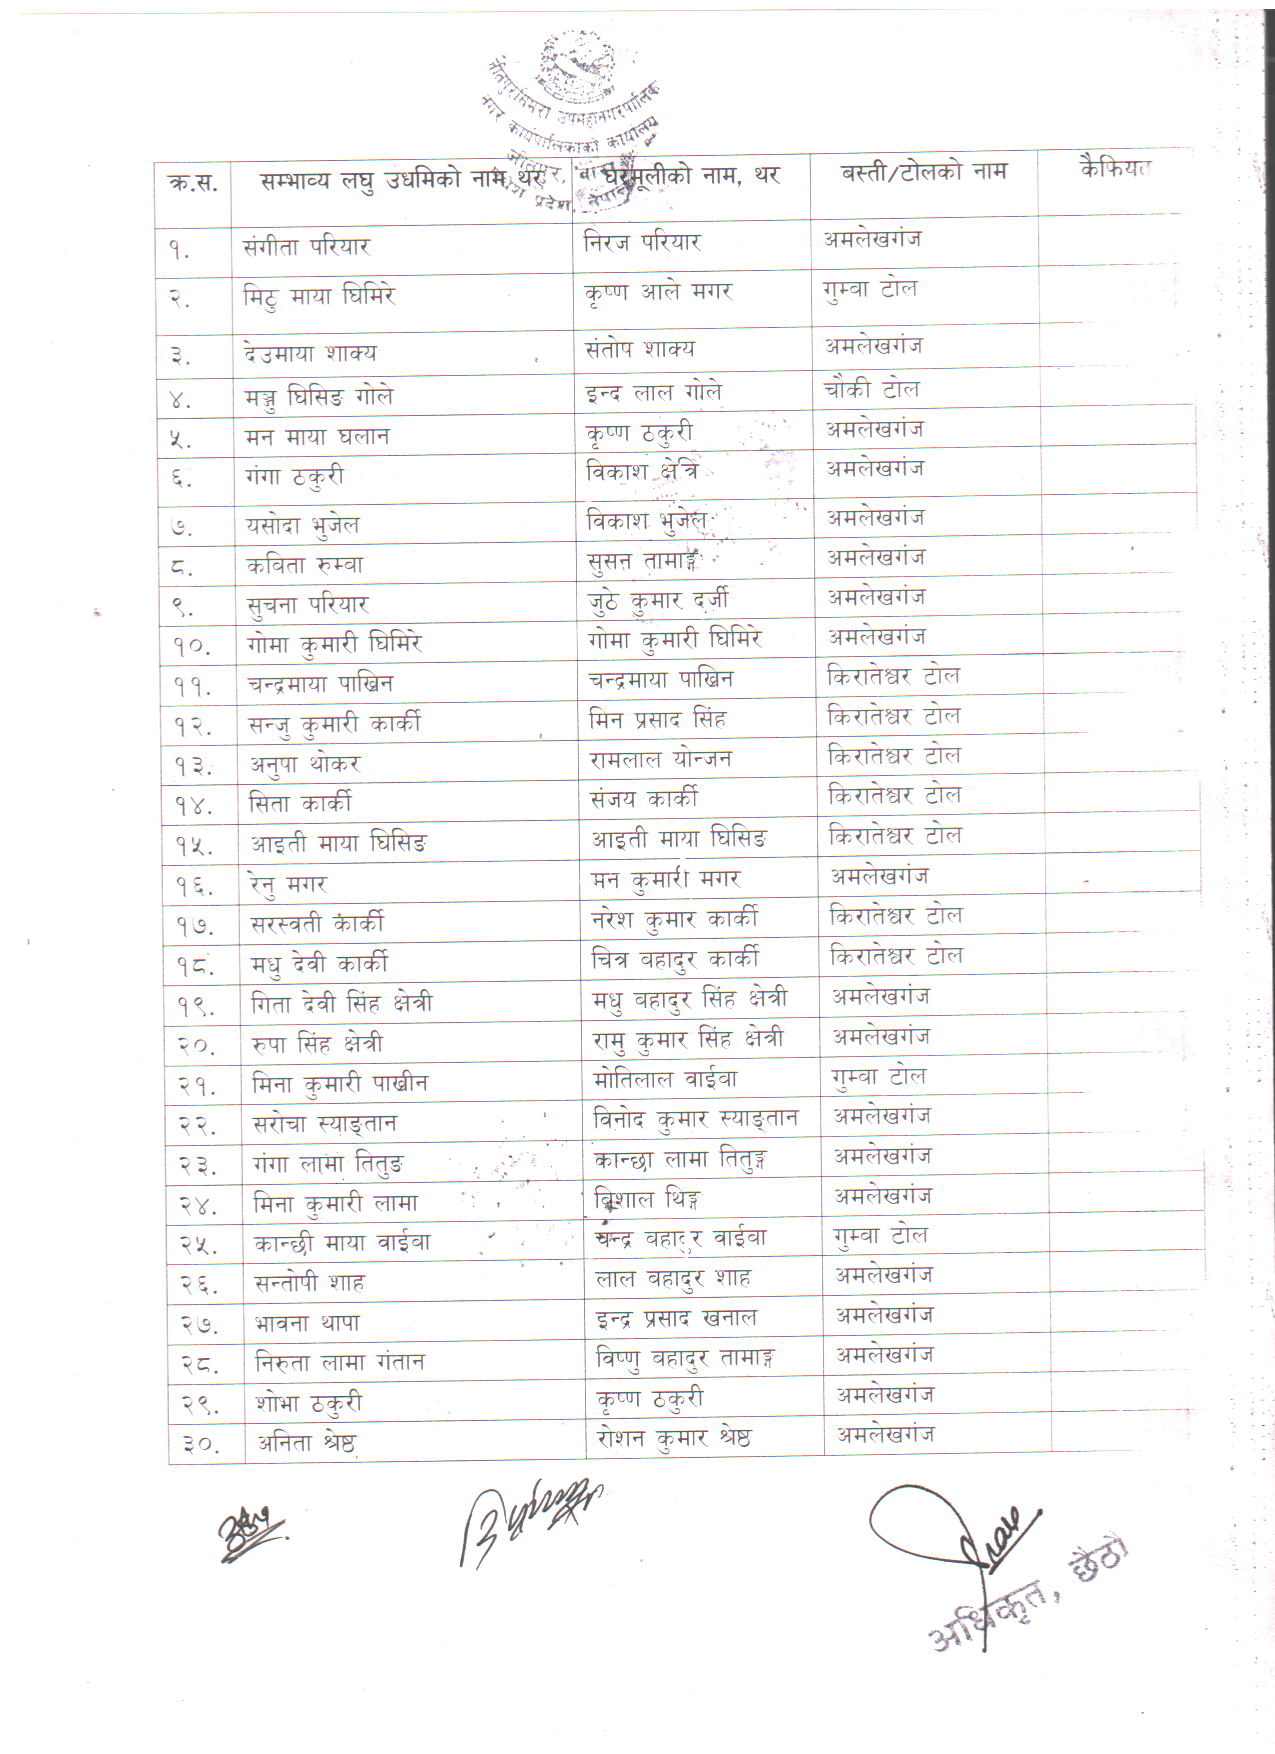 जीतपुरसिमरा उपमहानगरपालिका
नगर कार्यपालिकाको कार्यालय
जीतपुर, बारा
प्रदेश, नेपाल
क्र.स. सम्भाव्य लघु उधमिको नाम, थर घरमूलीको नाम, थर बस्ती/टोलको नाम कैफियत
१. संगीता परियार निरज परियार अमलेखगंज
२. मिठु माया घिमिरे कृष्ण आले मगर गुम्वा टोल
३. देउमाया शाक्य संतोष शाक्य अमलेखगंज
४. मञ्जु घिसिङ गोले इन्द लाल गोले चौकी टोल
५. मन माया घलान कृष्ण ठकुरी अमलेखगंज
६. गंगा ठकुरी विकाश क्षेत्रि अमलेखगंज
७. यसोदा भुजेल विकाश भुजेल अमलेखगंज
८. कविता रुम्वा सुसन तामाङ्ग अमलेखगंज
९. सुचना परियार जुठे कुमार दर्जी अमलेखगंज
१०. गोमा कुमारी घिमिरे गोमा कुमारी घिमिरे अमलेखगंज
११. चन्द्रमाया पाख्रिन चन्द्रमाया पाख्रिन किरातेश्वर टोल
१२. सन्जु कुमारी कार्की मिन प्रसाद सिंह किरातेश्वर टोल
१३. अनुपा थोकर रामलाल योन्जन किरातेश्वर टोल
१४. सिता कार्की संजय कार्की किरातेश्वर टोल
१५. आइती माया घिसिङ आइती माया घिसिङ किरातेश्वर टोल
१६. रेनु मगर मन कुमारी मगर अमलेखगंज
१७. सरस्वती कार्की नरेश कुमार कार्की किरातेश्वर टोल
१८. मधु देवी कार्की चित्र वहादुर कार्की किरातेश्वर टोल
१९. गिता देवी सिंह क्षेत्री मधु वहादुर सिंह क्षेत्री अमलेखगंज
२०. रुपा सिंह क्षेत्री रामु कुमार सिंह क्षेत्री अमलेखगंज
२१. मिना कुमारी पाख्रीन मोतिलाल वाईवा गुम्वा टोल
२२. सरोचा स्याङ्तान विनोद कुमार स्याङ्तान अमलेखगंज
२३. गंगा लामा तितुङ कान्छा लामा तितुङ्ग अमलेखगंज
२४. मिना कुमारी लामा विशाल थिङ्ग अमलेखगंज
२५. कान्छी माया वाईवा चन्द्र वहादुर वाईवा गुम्वा टोल
२६. सन्तोषी शाह लाल वहादुर शाह अमलेखगंज
२७. भावना थापा इन्द्र प्रसाद खनाल अमलेखगंज
२८. निरुता लामा गंतान विष्णु बहादुर तामाङ्ग अमलेखगंज
२९. शोभा ठकुरी कृष्ण ठकुरी अमलेखगंज
३०. अनिता श्रेष्ठ रोशन कुमार श्रेष्ठ अमलेखगंज
अधिकृत, छैठौ